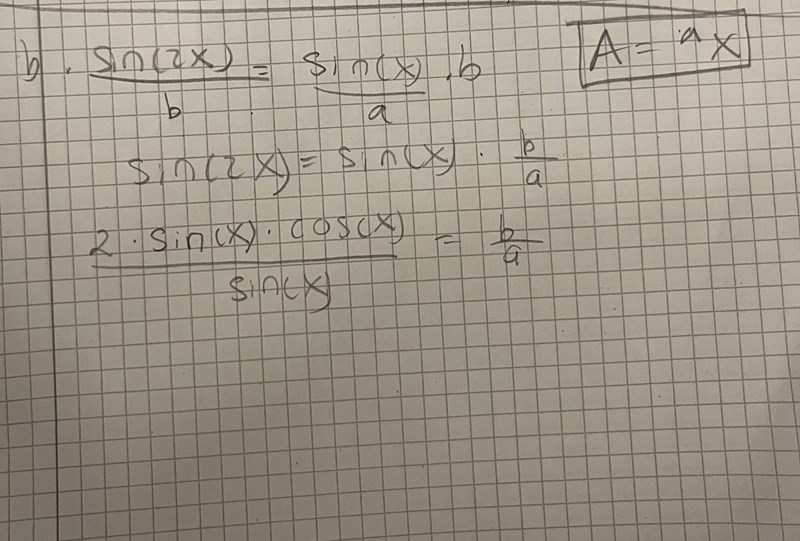 b · sin(2x)/b = sin(x)/a · b
A = ax
sin(2x) = sin(x) · b/a
2 · sin(x) · cos(x)/sin(x) = b/a